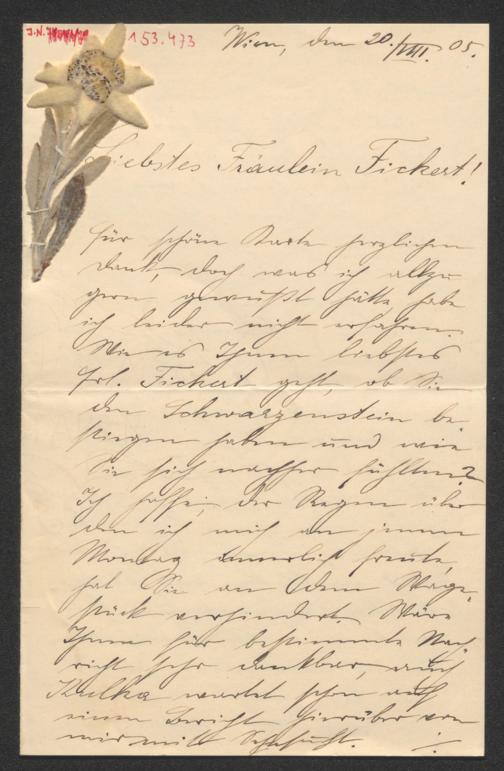 J.N. 153.473
Wien, den 20./VIII. 05.
Liebstes Fräulein Fickert!
Für schöne Karte herzlichen
Dank, doch was ich allzu
gern gewußt hätte habe
ich leider nicht erfahren.
Wie es Ihnen liebstes
Frl. Fickert geht, ob Sie
den Schwarzenstein be-
stiegen haben und wie
Sie sich nachher fühlten?
Ich hoffe, der Regen über
den ich mich an jenem
Montag innerlich freute,
hat Sie an dem Wage-
stück verhindert. Wäre
Ihnen für bestimmte Nach-
richt sehr dankbar, auch
Kulka wartet schon auf
einen Bericht hierüber von
mir mit Sehnsucht. ./.